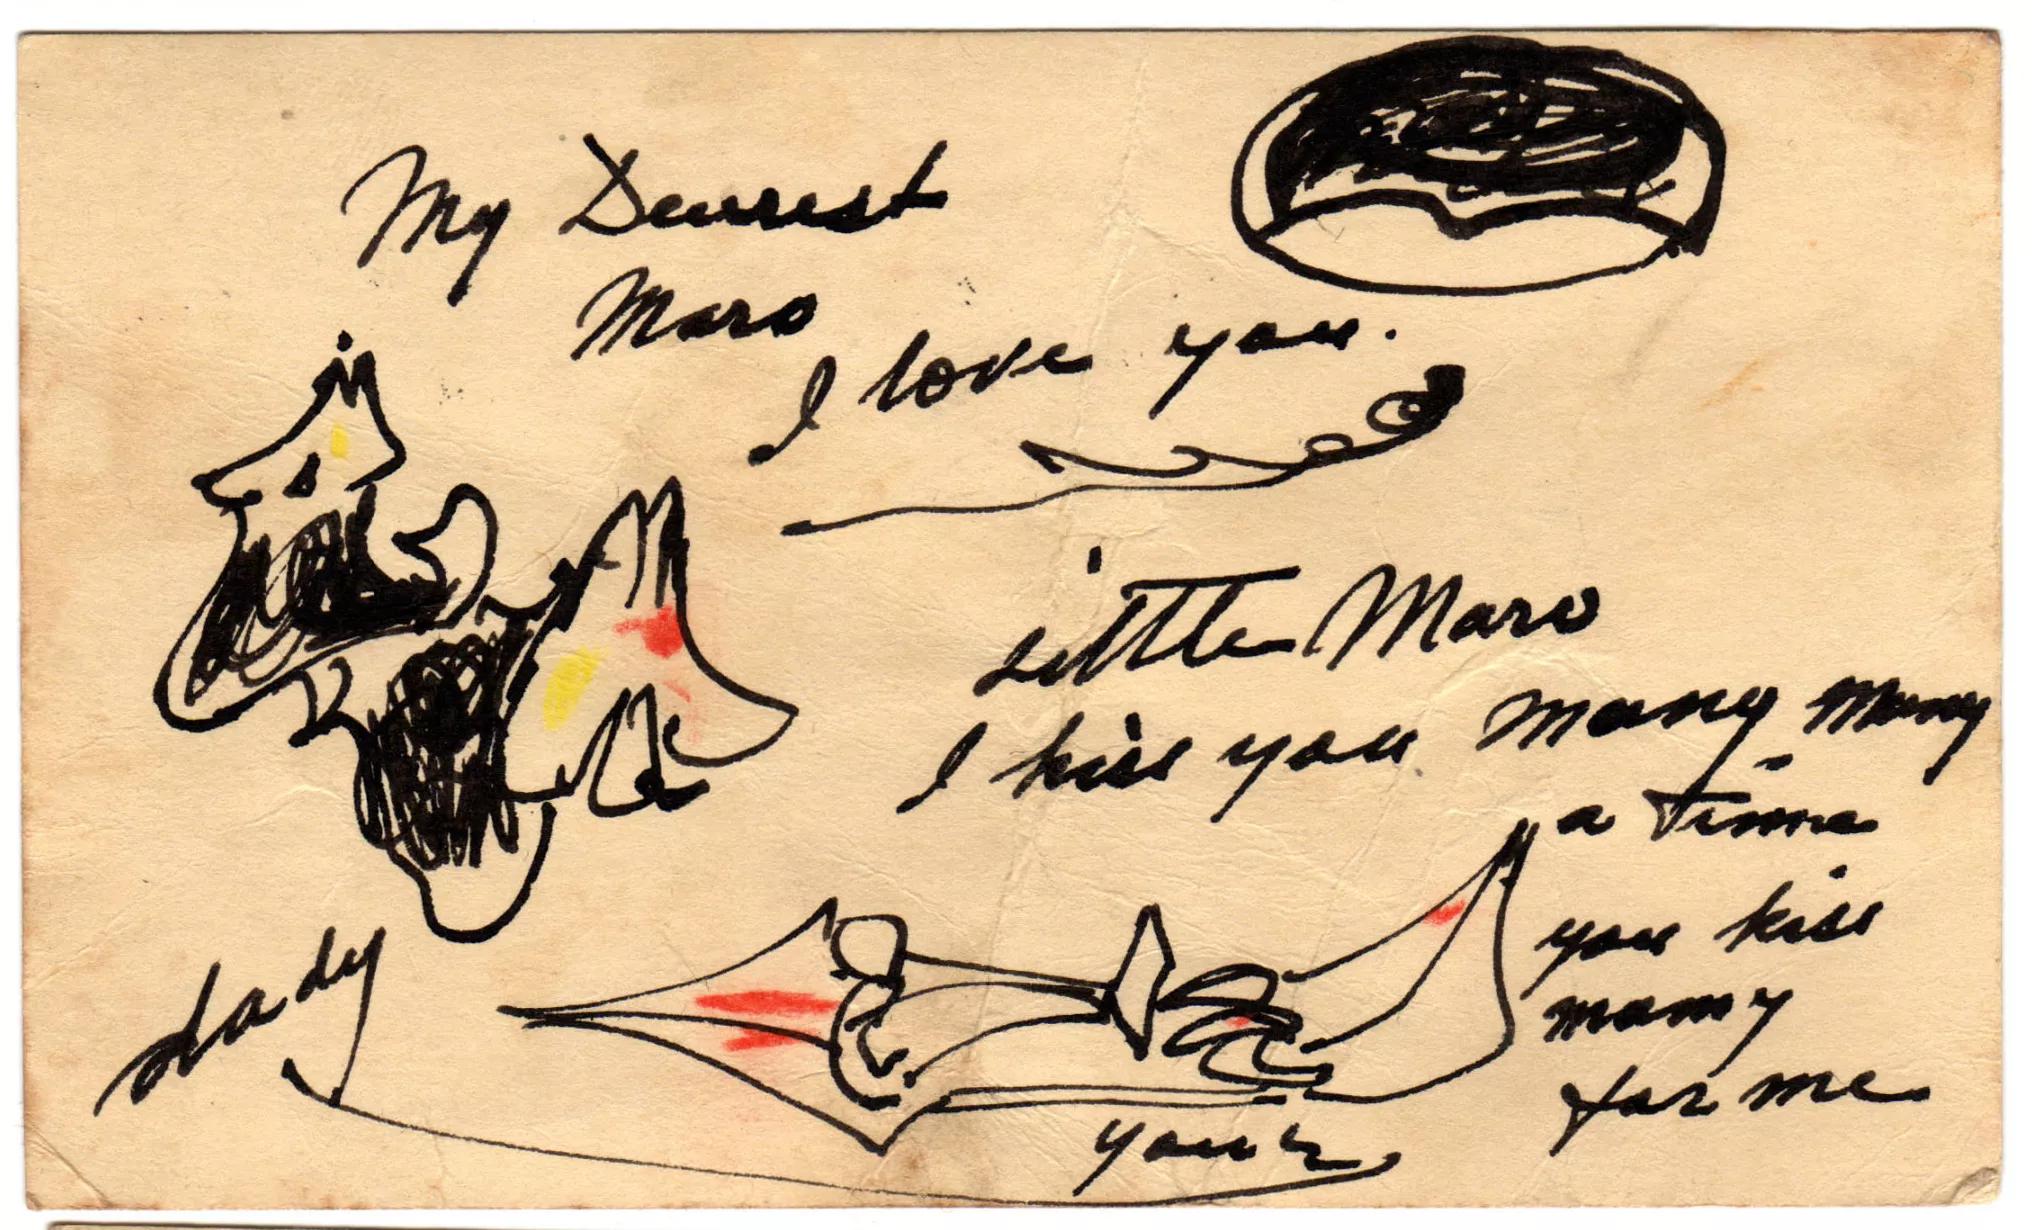 My Dearest
Maro
I love you.
Little Maro
I kiss you many many
a time
you kiss
mamy
for me.
your
dady